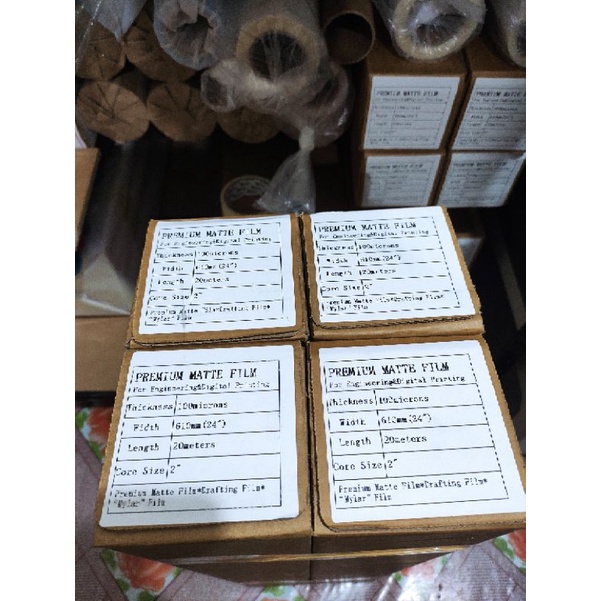 PREMIUM MATTE FILM
For Engineering&Digital Printing
Thickness 100microns
Width 610mm(24")
Length 20meters
Core Size 2"
Premium Matte Film*Drafting Film*
"Mylar" Film
PREMIUM MATTE FILM
For Engineering&Digital Printing
Thickness 100microns
Width 610mm(24")
Length 20meters
Core Size 2"
Premium Matte Film*Drafting Film*
"Mylar" Film
PREMIUM MATTE FILM
For Engineering&Digital Printing
Thickness 100microns
Width 610mm(24")
Length 20meters
Core Size 2"
Premium Matte Film*Drafting Film*
"Mylar" Film
PREMIUM MATTE FILM
For Engineering&Digital Printing
Thickness 100microns
Width 610mm(24")
Length 20meters
Core Size 2"
Premium Matte Film*Drafting Film*
"Mylar" Film
PREMIUM MATTE FILM
Width
Length
Core Size
PREMIUM MATTE FILM